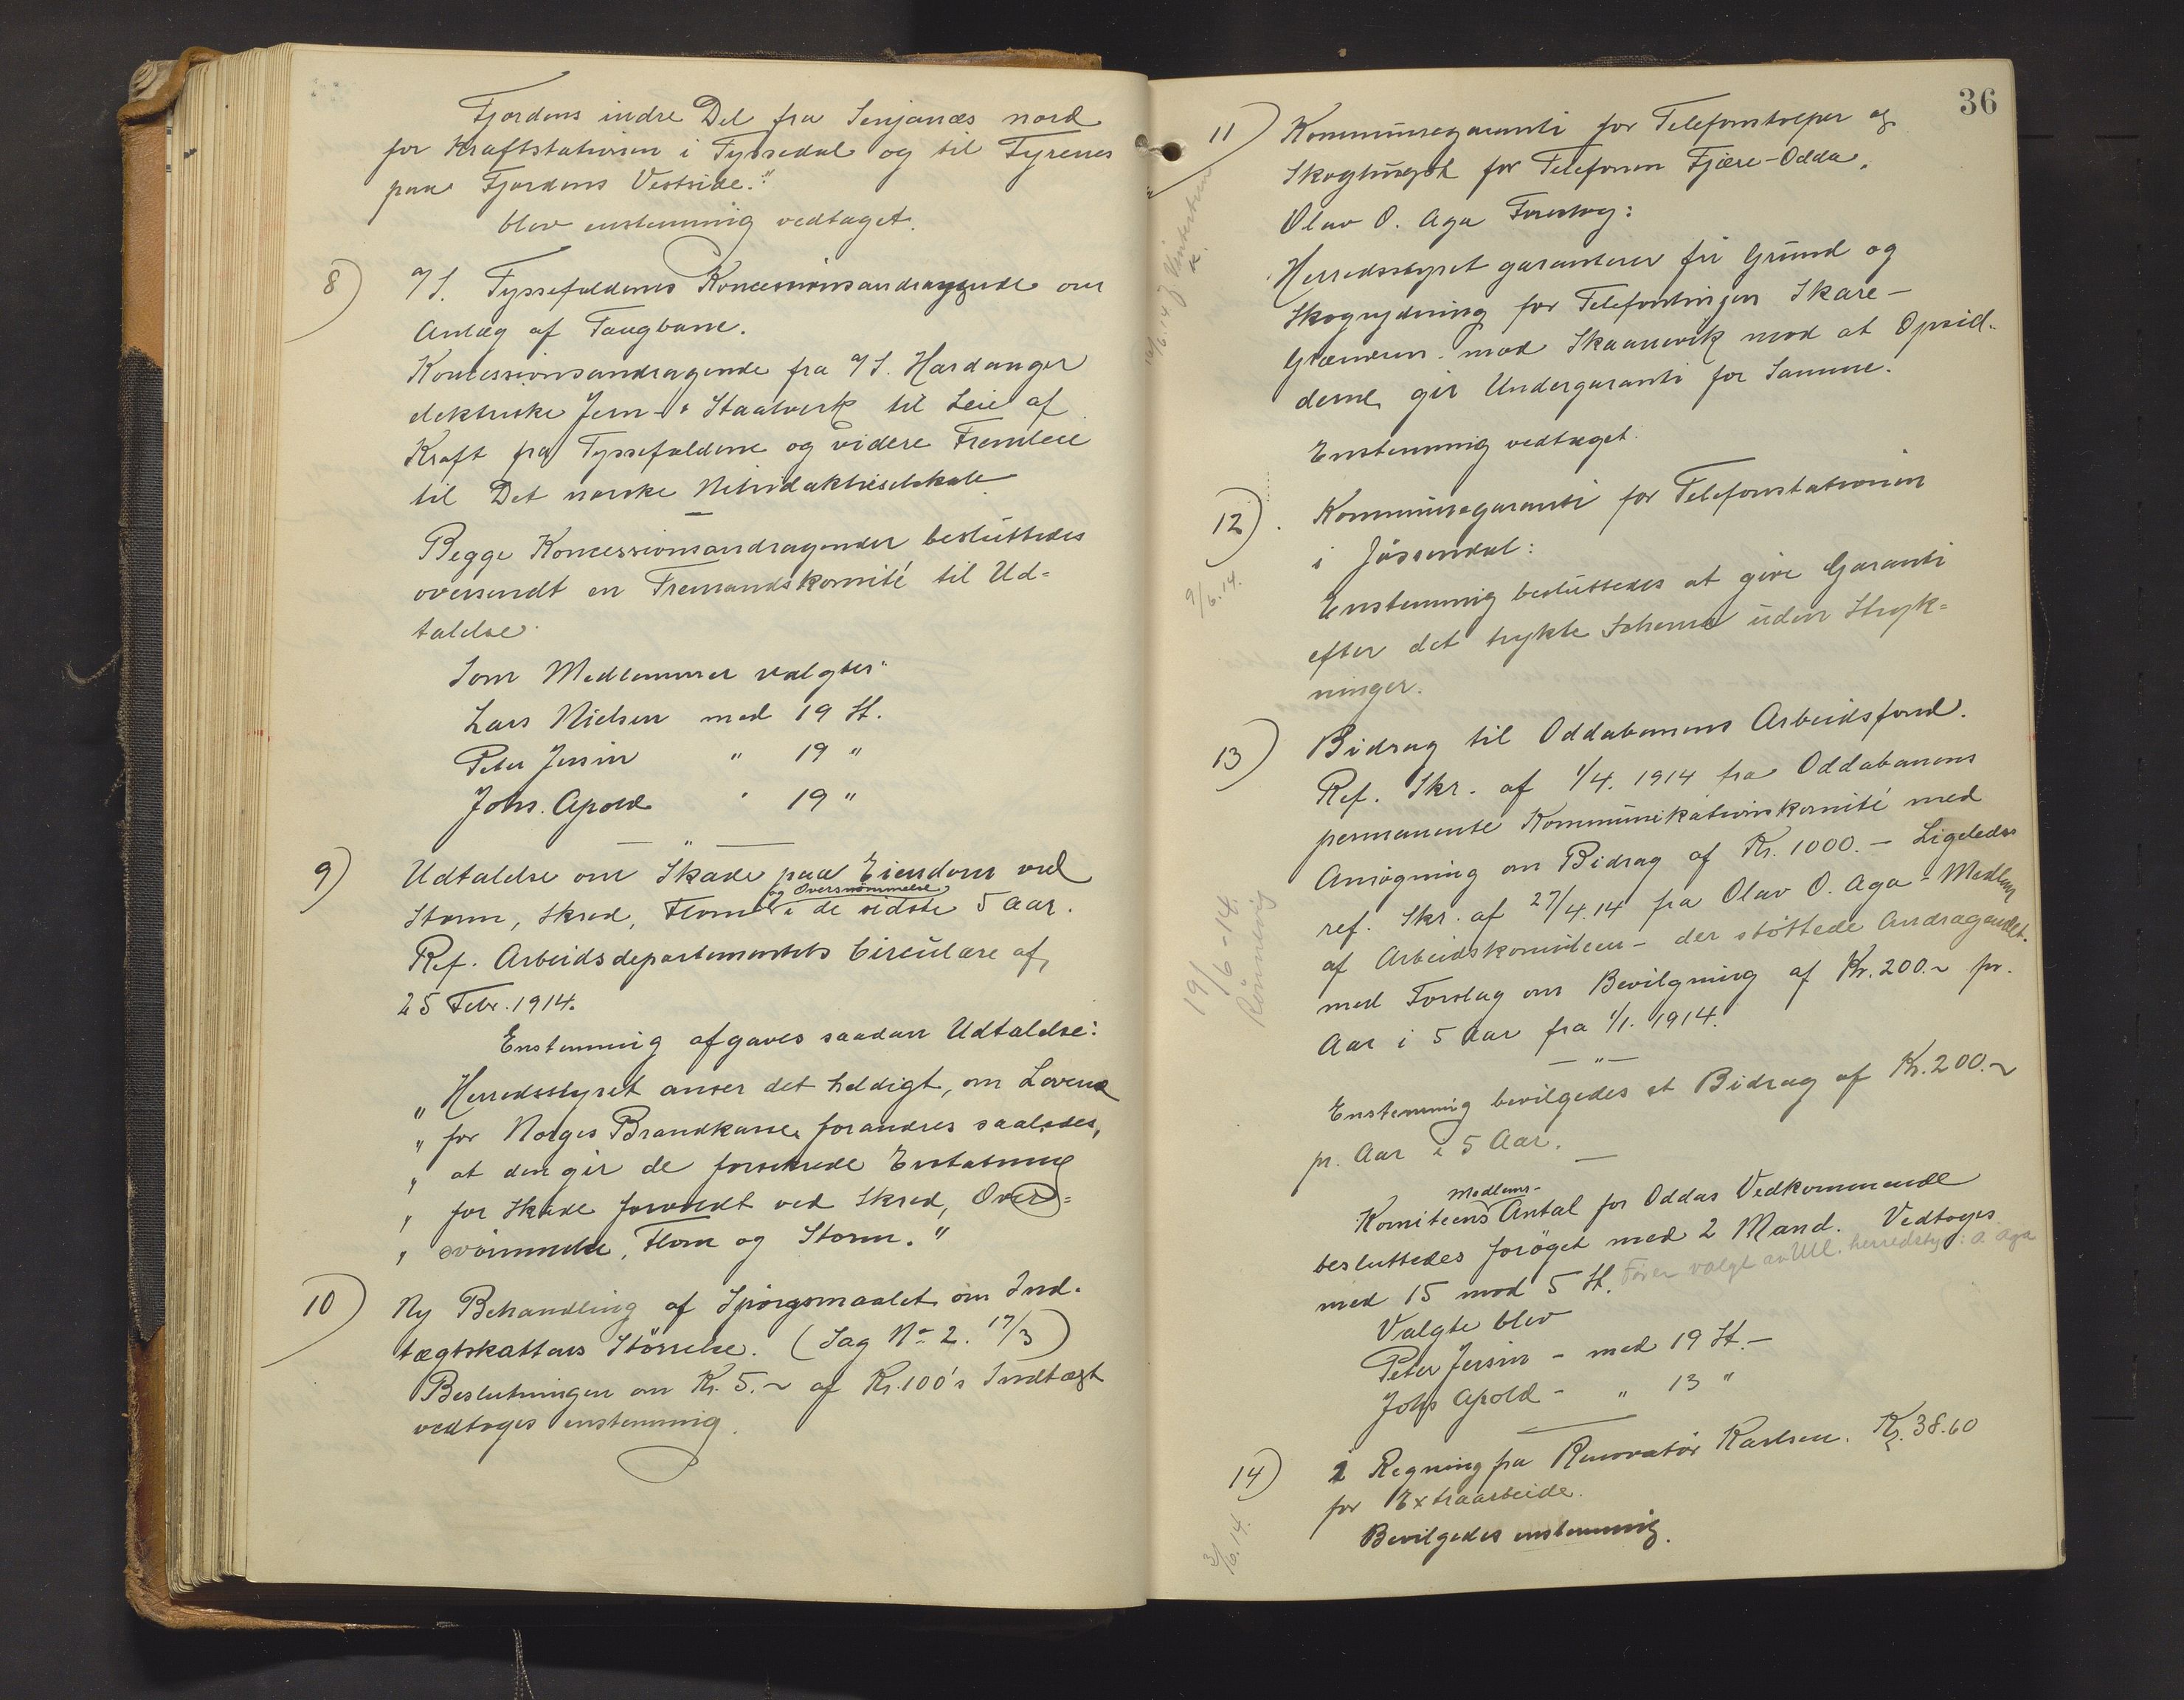 Fjordens indre Del fra Senjanæs nord
for Kraftstationen i Tyssedal og til Tyrenes
paa Fjordens Vestside."
blev enstemmig vedtaget.
8) A/S. Tyssefaldenes Koncessionsandragende om
Anlæg af Taugbane.
Koncessionsandragende fra A/S. Hardanger
elektriske Jern- & Staalverk til Leie af
Kraft fra Tyssefaldene og videre Fremleie
til Det norske Nitridaktieselskab
Begge Koncessionsandragender besluttedes
oversendt en Tremandskomité til Ud=
talelse.
Som Medlemmer valgtes:
Lars Nielsen med 19 St.
Peter Jersin " 19 "
Johs. Apold " 19 "
9) Udtalelse om Skade paa Eiendom ved
og Oversvømmelse
Storm, Skred, Flom i de sidste 5 Aar.
Ref. Arbeidsdepartementets Circulære af
25 Febr. 1914.
Enstemmig afgaves saadan Udtalelse:
„ Herredsstyret anser det heldigt, om Lovene
„ for Norges Brandkasse forandres saaledes,
„ at den gir de forsikrede Erstatning
„ for Skade forvoldt ved Skred, Over=
„ svømmelse, Flom og Storm."
10) Ny Behandling af Spørgsmaalet om Ind-
tægtskattens Størrelse. (Sag No 2. 17/3)
Beslutningen om Kr. 5.~ af Kr. 100's Indtægt
vedtoges enstemmig.
36
11) Kommunegaranti for Telefonstolper og
Skoghugst for Telefonen Fjære-Odda.
Olav O. Aga Foreslog:
Herredsstyret garanterer fri Grund og
Skogrydning for Telefonlinjen Skare-
Grænsen mod Skaanevik mod at Opsid-
derne gir Undergaranti for Samme.
Enstemmig vedtaget.
12) Kommunegaranti for Telefonstationen
i Jøssendal:
9/6.14.
Enstemmig besluttedes at give Garanti
efter det trykte Schema uden Stryk=
ninger.
13) Bidrag til Oddabanens Arbeidsfond.
Ref. Skr. af 1/4. 1914 fra Oddabanens
permanente Kommunikationskomité med
Ansøgning om Bidrag af Kr. 1000.- Ligeledes
ref. Skr. af 27/4.14 fra Olav O. Aga - Medlem
af Arbeidskomiteen - der støttede Andragendet.
19/6-14.
med Forslag om Bevilgning af Kr. 200.~ pr.
Aar i 5 Aar fra 1/1. 1914.
— " —
Enstemmig bevilgedes et Bidrag af Kr. 200.~
pr. Aar i 5 Aar.
Medlems-
Komiteens Antal for Oddas Vedkommende
besluttedes forøget med 2 Mand. Vedtoges
med 15 mod 5 St. Før er valgt av Ull. herredstyr: O. Aga
Valgte blev
Peter Jersin - med 19 St.-
Johs Apold - " 13 "
14) 1 Regning fra Renovatør Karlsen. Kr. 38.60
for Extraarbeide.
3/6.14.
Bevilgedes enstemmig.